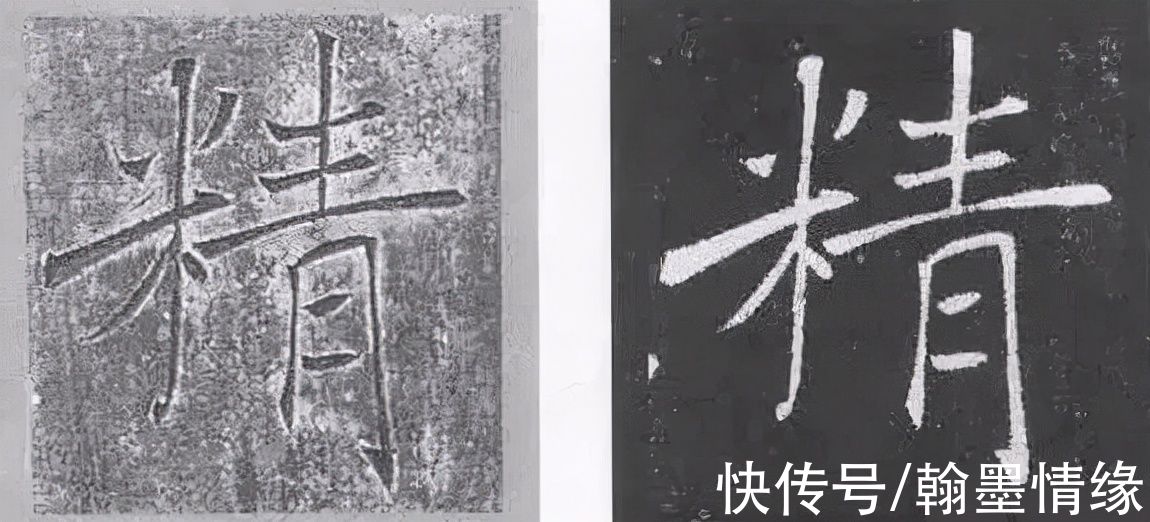 精 精
快传号/翰墨情缘